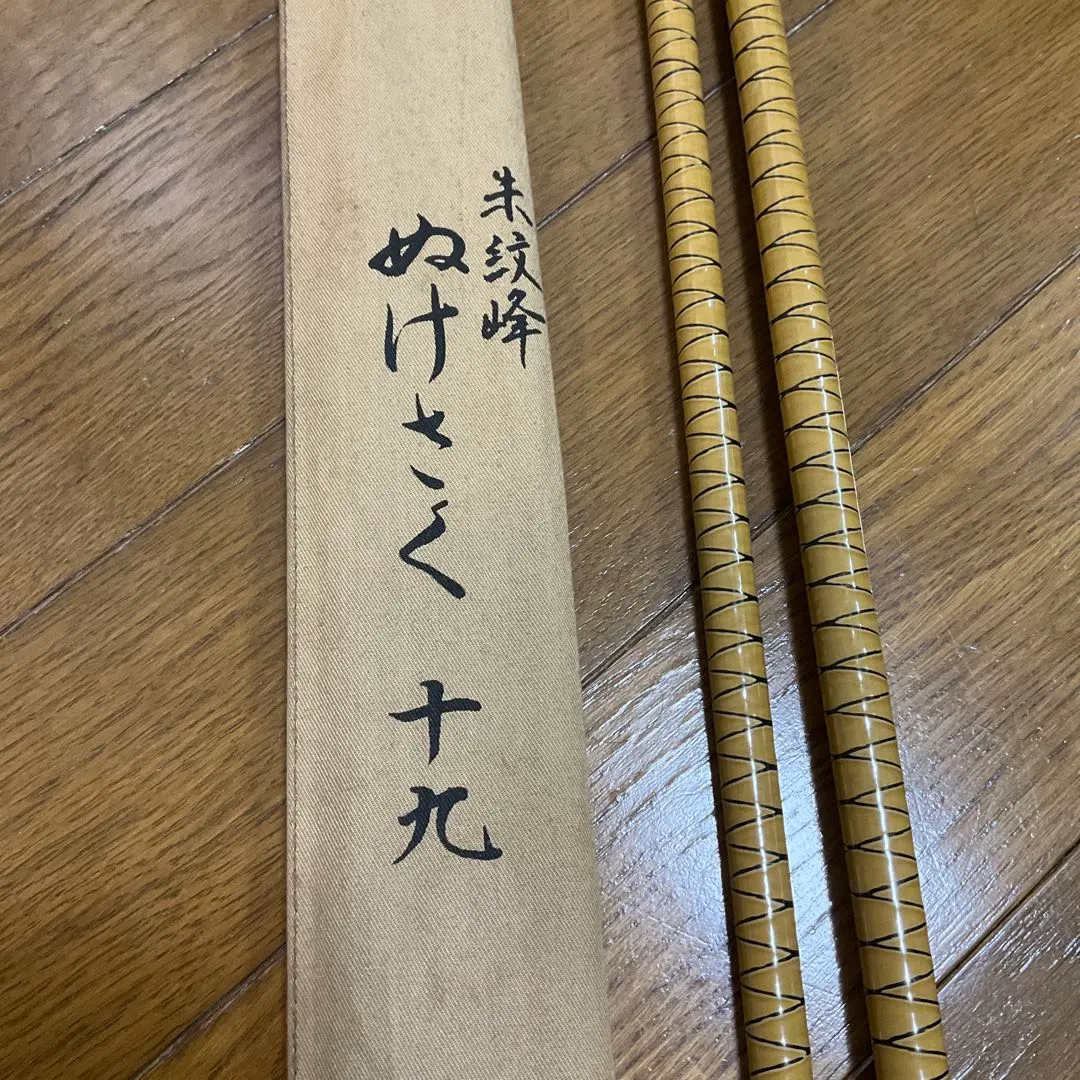 朱紋峰
ぬけさく 十九